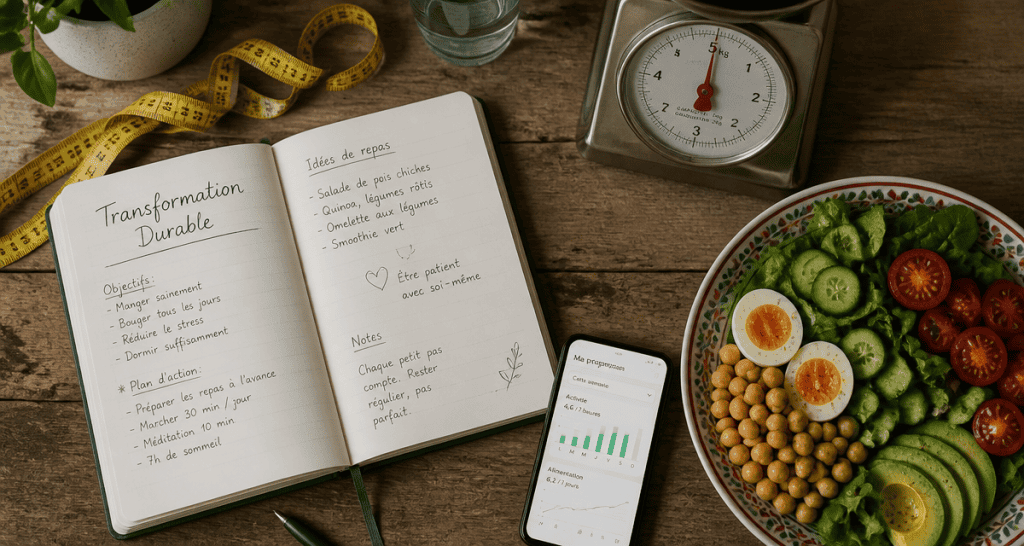 Transformation
Durable
Objectifs:
- Manger sainement
- Bouger tous les jours
- Réduire le stress
- Dormir suffisamment
* Plan d'action:
- Préparer les repas à l'avance
- Marcher 30 min / jour
- Méditation 10 min
- 7h de sommeil
Idées de repas
- Salade de pois chiches
- Quinoa, légumes rôtis
- Omelette aux légumes
- Smoothie vert
Être patient
avec soi-même
Notes
Chaque petit pas
compte. Rester
régulier, pas
parfait.
5 kg
1
2
2
3
4
4
5
Ma progression
Cette semaine
Activité
4,6 / 7 heures
Alimentation
6,2 / 7 jours